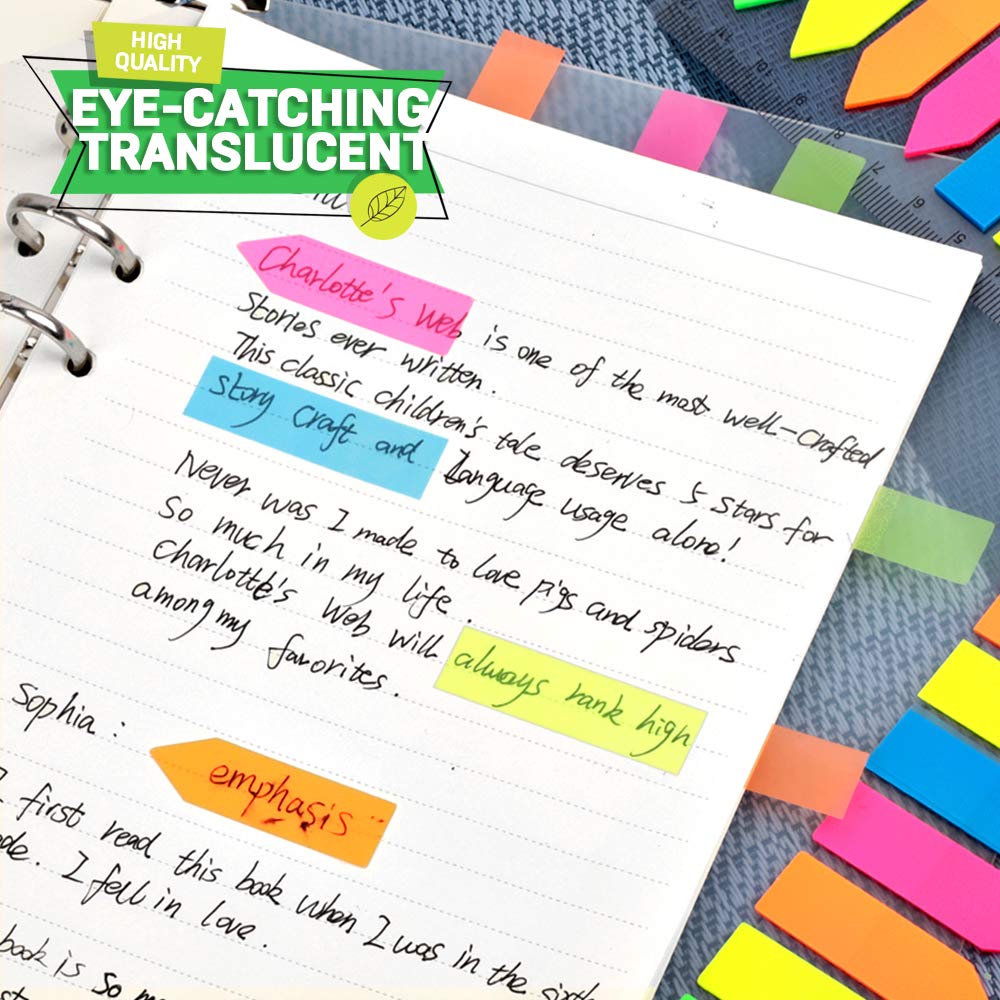 HIGH
QUALITY
EYE-CATCHING
TRANSLUCENT
Charlotte's Web is one of the most well-crafted
Stories ever written.
This classic children's tale deserves 5 stars for
story craft and Language usage alone!
Never was I made to love pigs and spiders
So much in my life.
Charlotte's Web will always rank high
among my favorites.
Sophia:
emphasis
I first read this book when I was in the sixth
I fell in love.
book is so
10
7
6
5